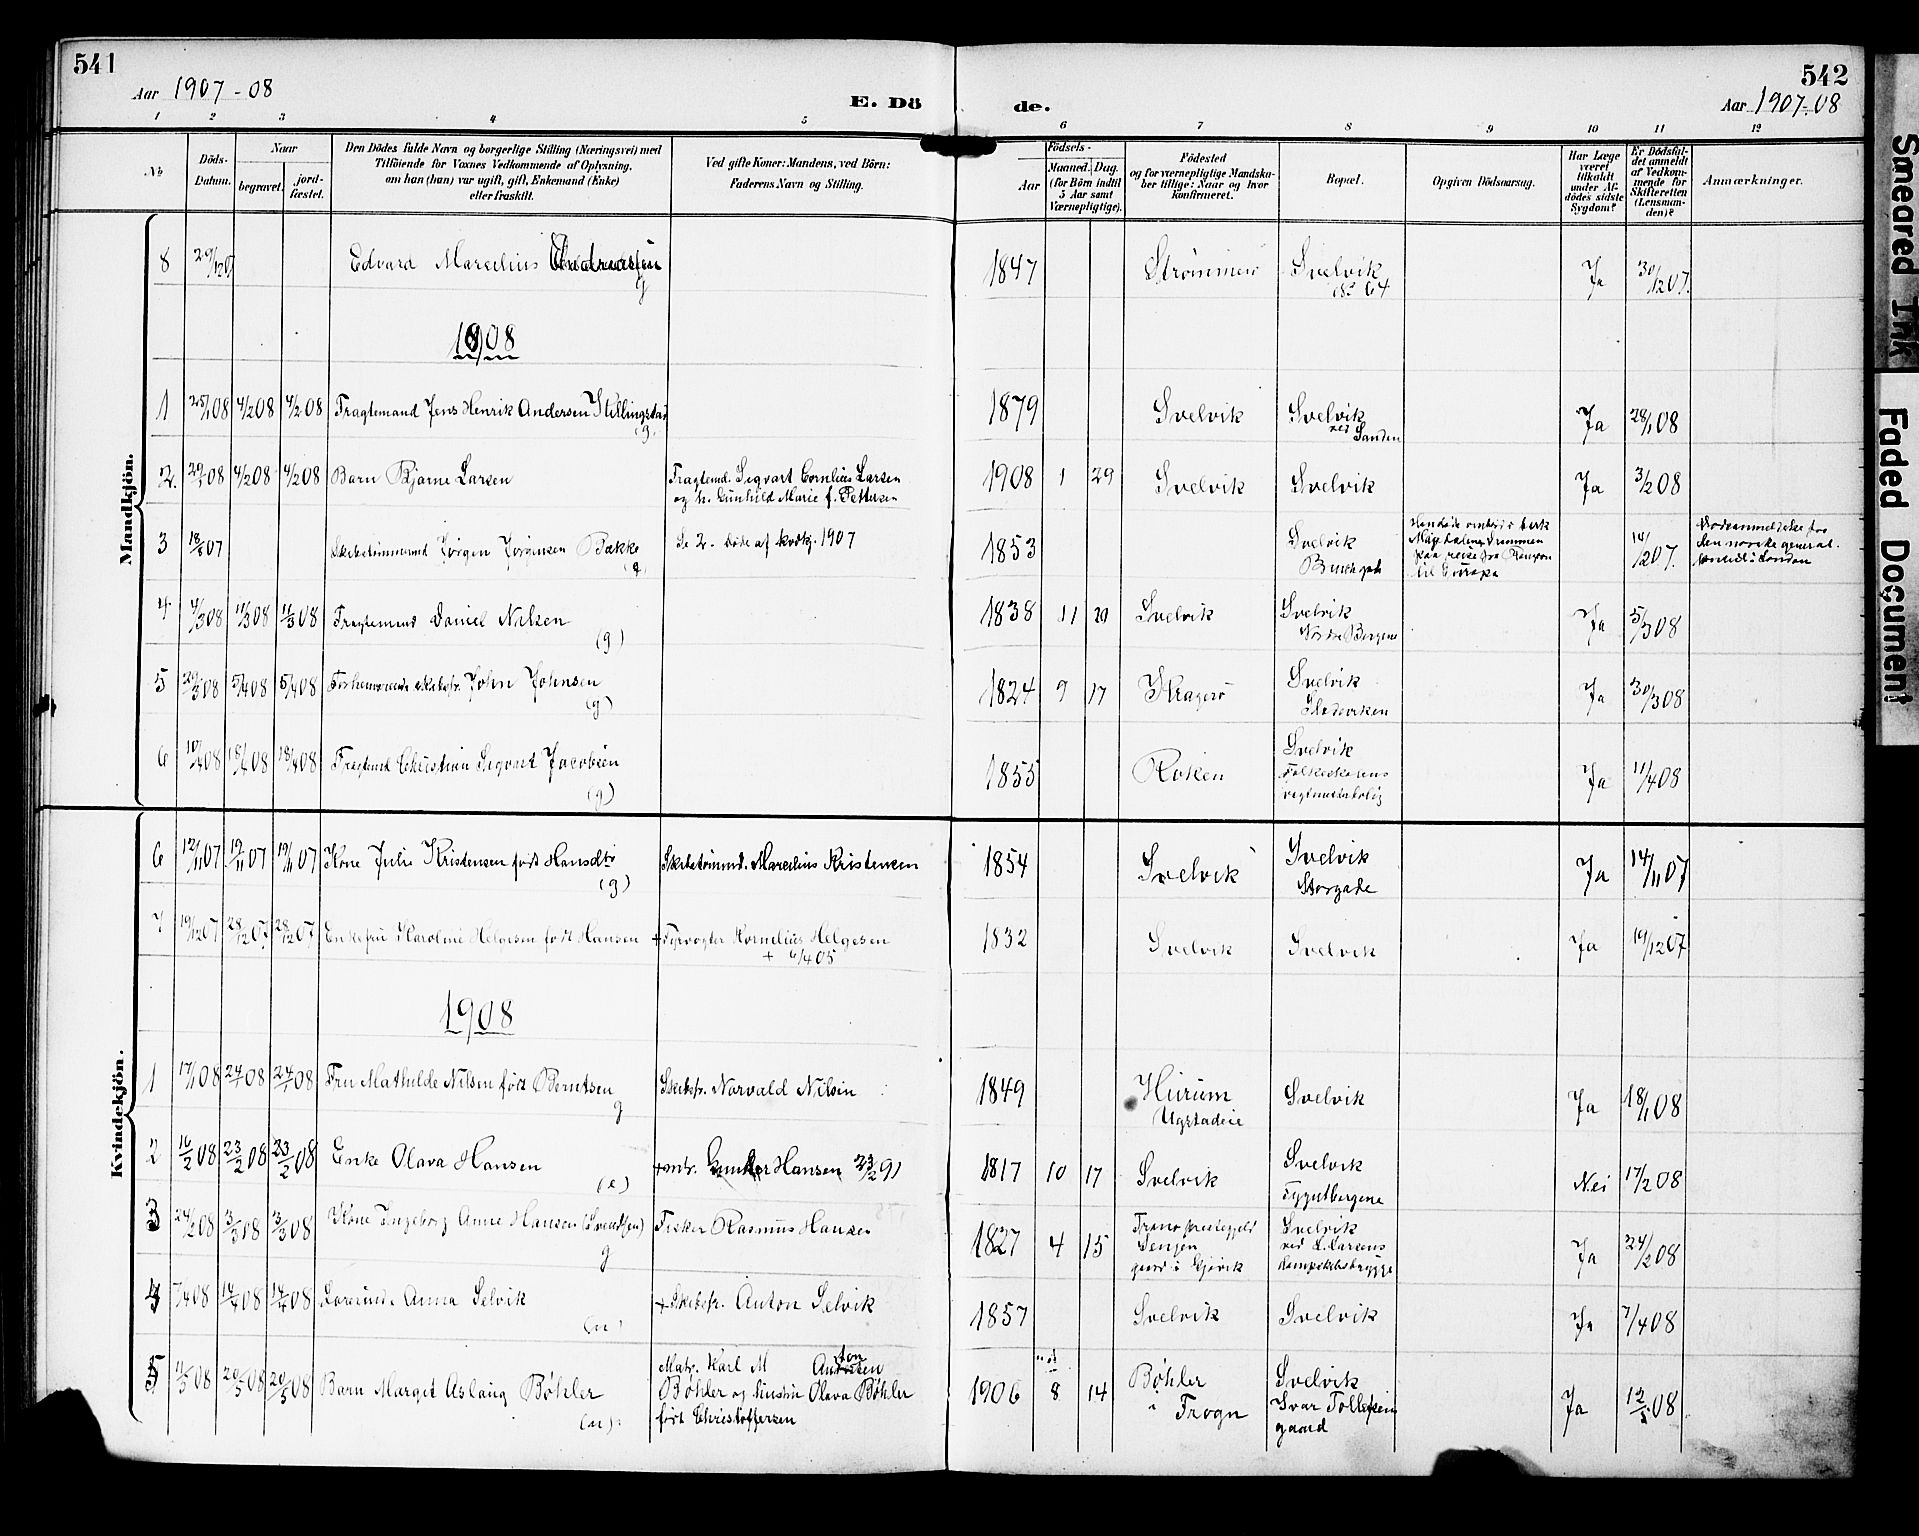 541
Aar 1907-08
E. Dö
de.
542
Aar 1907-08
1 2 3 4 5 6 7 8 9 10 11 12
No
Döds-Datum.
Naar
begravet.
jord-fæstet.
Den Dödes fulde Navn og borgerlige Stilling (Næringsvei) med
Tilföiende for Voxnes Vedkommende af Oplysning,
om han (hun) var ugift, gift, Enkemand (Enke)
eller fraskilt.
Ved gifte Koner: Mandens, ved Börn:
Faderens Navn og Stilling.
Födsels-
Aar
Maaned. Dag.
(for Börn indtil
5 Aar samt
Værnepligtige).
Födested
og for værnepligtige Mandska-
ber tillige: Naar og hvor
konfirmeret.
Bopæl.
Opgiven Dödsaarsag.
Har Læge
været
tilkaldt
under Af-
dödes sidste
Sygdom?
Er Dödsfal-
det anmeldt
af Vedkom-
mende for
Skifteretten
(Lensman-
den)?
Anmærkninger.
Mandkjön.
8 29/12 07 Edvard Marcelius Andreasen g 1847 Strømmen Svelvik Ja 30/12 07.
1908
1 25/1 08 4/2 08 4/2 08 Fragtemand Jens Henrik Andersen Stillingstad (g) 1879 Svelvik Svelvik ved Sanden Ja 28/1 08
2. 08 4/2 08 4/2 08 Barn Bjarne Larsen Fragtemd. Sigvart Cornelius Larsen
og h. Gunhild Marie f. Pettersen 1908 1 29 Svelvik Svelvik Ja 3/2 08
3 07 Skibstømmermd Jørgen Jørgensen Bakke (g) Se 2. døde af kvdkj. 1907 1853 Svelvik 207.
til Europa
4 4/3 08 11/3 08 11/3 08 Fragtemand Daniel Nilsen (g) 1838 11 20 Svelvik Svelvik Ja 5/3 08
5 29/3 08 5/4 08 5/4 08 Forhenværende skibsfr. John Johnsen (g) 1824 9 17 Kragerø Svelvik Ja 30/3 08
6 10/4 08 18/4 08 18/4 08 Fragtemd Christian Sigvart Jacobsen (g) 1855 Røken Svelvik
Folkeskolens Ja 11/4 08
Kvindekjön.
6 12/11 07 19/11 07 19/11 07 Kone Julie Kristensen født Hansdtr (g) Skibstømmd. Marcelius Kristensen 1854 Svelvik Svelvik
Storgade Ja 14/11 07
7 19/12 07 28/12 07 28/12 07 Enkefru Karoline Helgesen født Hansen + Fyrvogter Kornelius Helgesen
+ 6/4 05 1832 Svelvik Svelvik Ja 19/12 07
1908
1 17/1 08 24/1 08 24/1 08 Fru Mathilde Nilsen født Berntsen g Skibsfr. Norvald Nilsen 1849 Hurum Svelvik Ja 18/1 08
2 16/2 08 23/2 08 23/2 08 Enke Olava Hansen (e) Hansen 23/2 91 1817 10 17 Svelvik Svelvik Nei 17/2 08
3 24/2 08 3/3 08 3/3 08 Kone Ingeborg Anne Hansen (Svendsen) g Fisker Rasmus Hansen 1827 4 15 Tranø præstegjeld
Senjen
gaard i Gjøvik Svelvik
ved L. Larsens
Dampskibsbrygge Ja 24/2 08
4 7/4 08 14/4 08 14/4 08 Lærerinde Anna Selvik (u) + Skibsfr. Anton Selvik 1857 Svelvik Svelvik Ja 7/4 08
5 11/5 08 20/5 08 20/5 08 Barn Margit Aslaug Bøhler (u) Matr. Karl M Anton
Bøhler og hustru Olava Bøhler
født Christoffersen 1906 8 14 Bøhler
i Frogn Svelvik
Ivar Tollefsen
gaard Ja 12/5 08
Smeared Ink
Faded Document